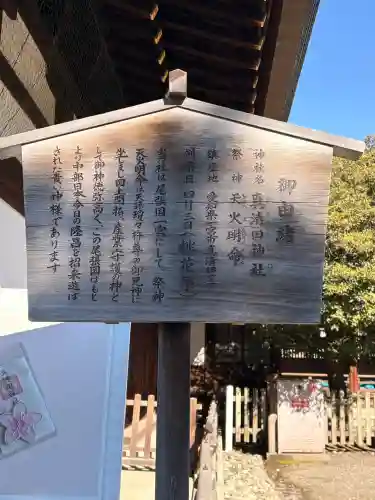 御由緒
神社名 真清田神社
祭神 天火明命
鎮座地 愛知県一宮市真清田一ー二
例祭日 四月三日(桃花祭)
当社は尾張国一宮にして 祭神
天火明命は天孫瓊々杵尊の御兄神に
坐され国土開拓、産業守護の神と
して御神徳弥高く、この尾張国はもと
より中部日本今日の隆昌を招来遊ば
された貴い神様であります